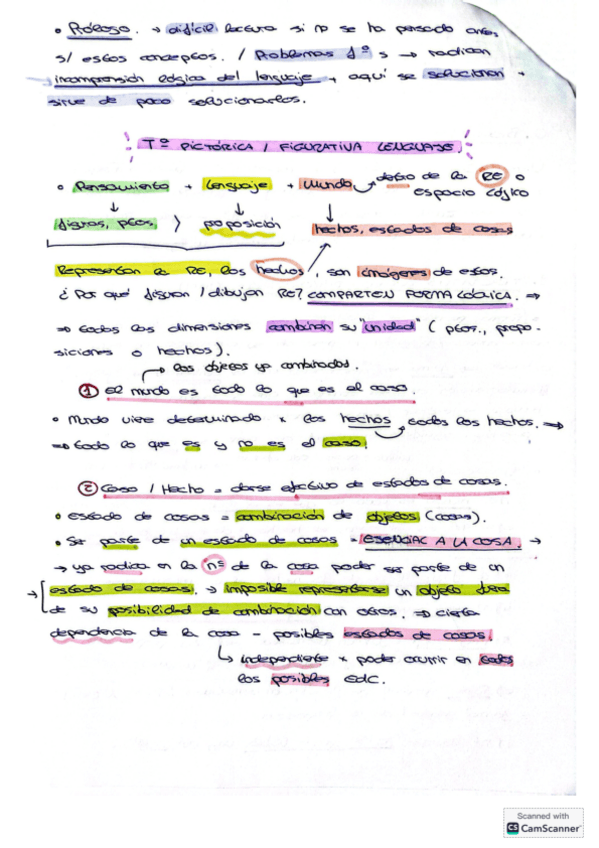 • Prólogo. → difícil lectura si no se ha pensado antes
s/ estos conceptos. / Problemas fª s → radican
incomprensión lógica del lenguaje → aquí se solucionan →
sirve de poco solucionarlos.
Tª PICTÓRICA / FIGURATIVA LENGUAJE.
• Pensamiento + lenguaje + mundo → dentro de la RE o
espacio lógico
↓ ↓ ↓
figuras, ptos, > proposición hechos, estados de cosas
Representan la RE, los hechos, son imágenes de estos.
¿Por qué figuran / dibujan RE? COMPARTEN FORMA LÓGICA. ⇒
⇒ todas las dimensiones combinan su "unidad" (ptos., propo-
siciones o hechos).
→ los objetos ya combinados.
① El mundo es todo lo que es el caso.
• Mundo viene determinado x los hechos → todos los hechos. ⇒
⇒ todo lo que es y no es el caso.
② Caso / Hecho = darse efectivo de estados de cosas.
• estado de cosas = combinación de objetos (cosas).
• Ser parte de un estado de cosas = ESENCIAL A LA COSA. →
→ ya radica en la nª de la cosa poder ser parte de un
→ estado de cosas. → imposible representarse un objeto fuera
de su posibilidad de combinación con otros. ⇒ cierta
dependencia de la cosa - posibles estados de cosas.
↳ independiente x poder ocurrir en todos
los posibles EdC.
Scanned with
CS CamScanner